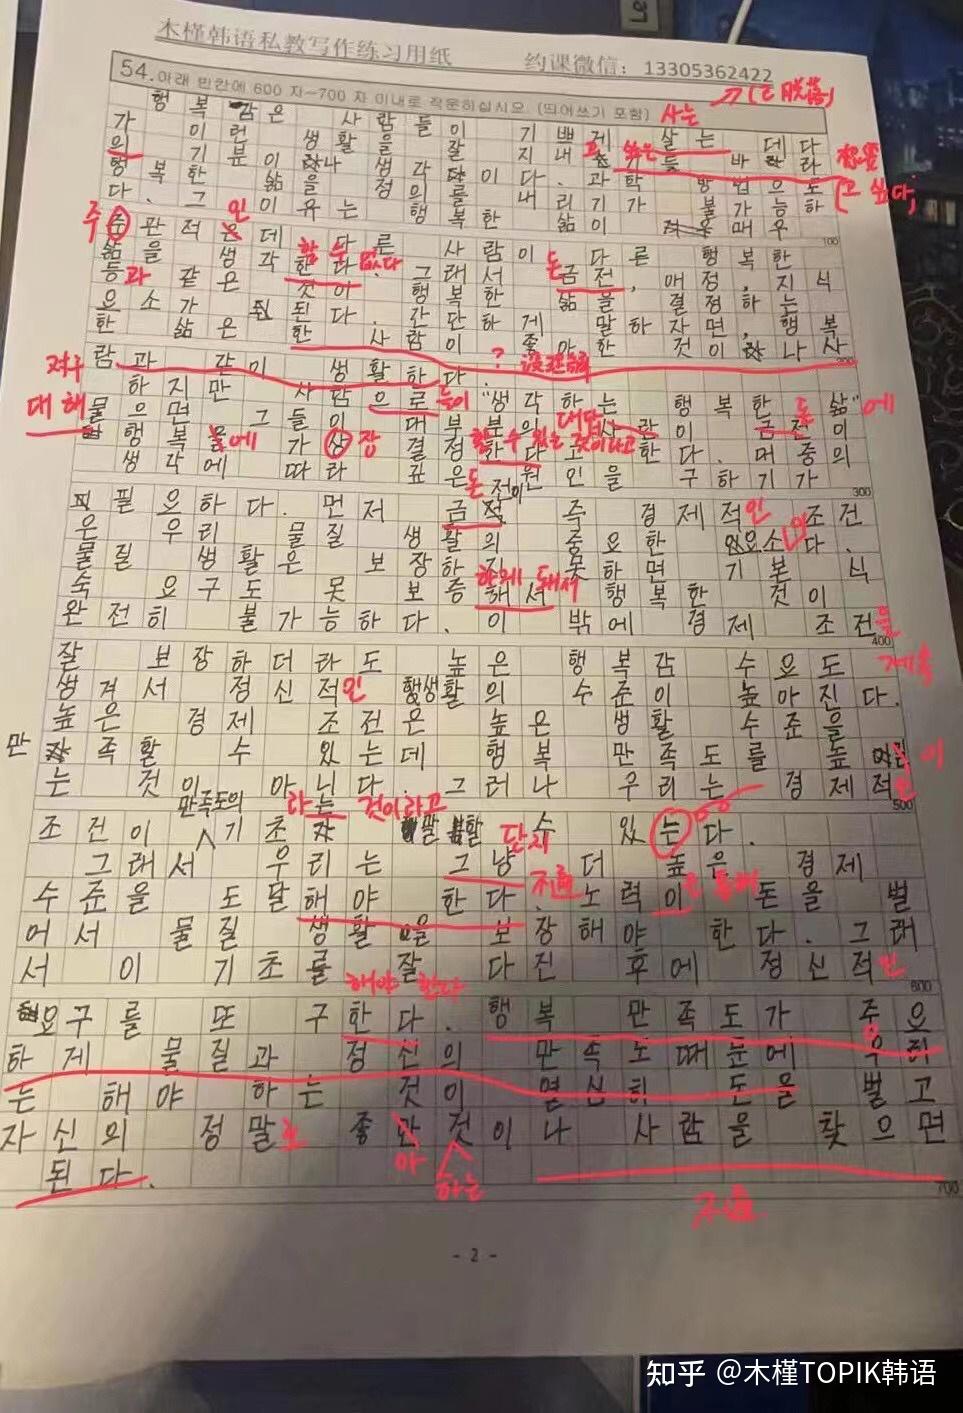 木槿韩语私教写作练习用纸 约课微信：13305362422
54.아래 만한에 600 자~700 자 이내로 작문하십시오. (띄어쓰기 포함) 사는
행복감은 사람들이 기쁘게 살는 데다
가 이런 생활을 잘 지내
의 기분이 생각이다. 과학 방법으로
고 싶다,
행복한 삶을 정의를 내리기가 불가능하
다. 그 이유는 행복한 삶이 매우
100
주 인
주관적은 데 다른 사람이 다른 행복한
할 수 없다 돈
삶을 생각한다. 그래서 금전, 애정, 지식
등과 같은 것이 행복한 삶을 결정하는
요소가 된다. 간단하게 말하자면, 행복
한 삶은 한 사람이 좋아한 것이나 사
람과 같이 생활하다. ?
하지만 사람으로 들이 "생각하는 행복한 삶"에
대해 물으면 그들이 대부분의 사람이 금전이
돈
행복을에 가상 장 결정하다고 한다.
할 수 있는 것이라고
생각에 따라 구하기가
300
필요하다. 먼저 금전 즉 경제적인 조건
은 우리 물질 생활의 중요한 요소이다.
물질 생활은 보장하지 못하면 기본 식
하게 돼서
숙 요구도 못 보증해서 행복한 것이
완전히 불가능하다. 이 밖에 경제 조건을
400
잘 보장하더라도 높은 행복감 수요도
생겨서 정신적인 생활의 수준이 높아진다.
높은 경제 조전은 높은 생활 수준을
만족할 수 있는데 행복 만족도를 높이
는 것이 아닌다. 그러나 우리는 경제적인
500
만족도의 라는 것이라고
조건이 기초 말할 수 있는다.
단지
그래서 우리는 그냥 더 높은 경제
不通
수준을 도달해야 한다. 노력이 돈을 벌
어서 물질 생활을 보장해야 한다. 그래
서 이 기초를 잘 다진 후에 정신적인
600
해야 한다
요구를 또 구한다. 행복 만족도가 주요
하게 물질과 정신의 만족도 때문에 우리
는 해야 하는 것이 열심히 돈을 벌고
자신의 정말로 좋 것이나 사람을 찾으면
아 하는
된다.
不通
700
- 2 -
知乎 @木槿TOPIK韩语